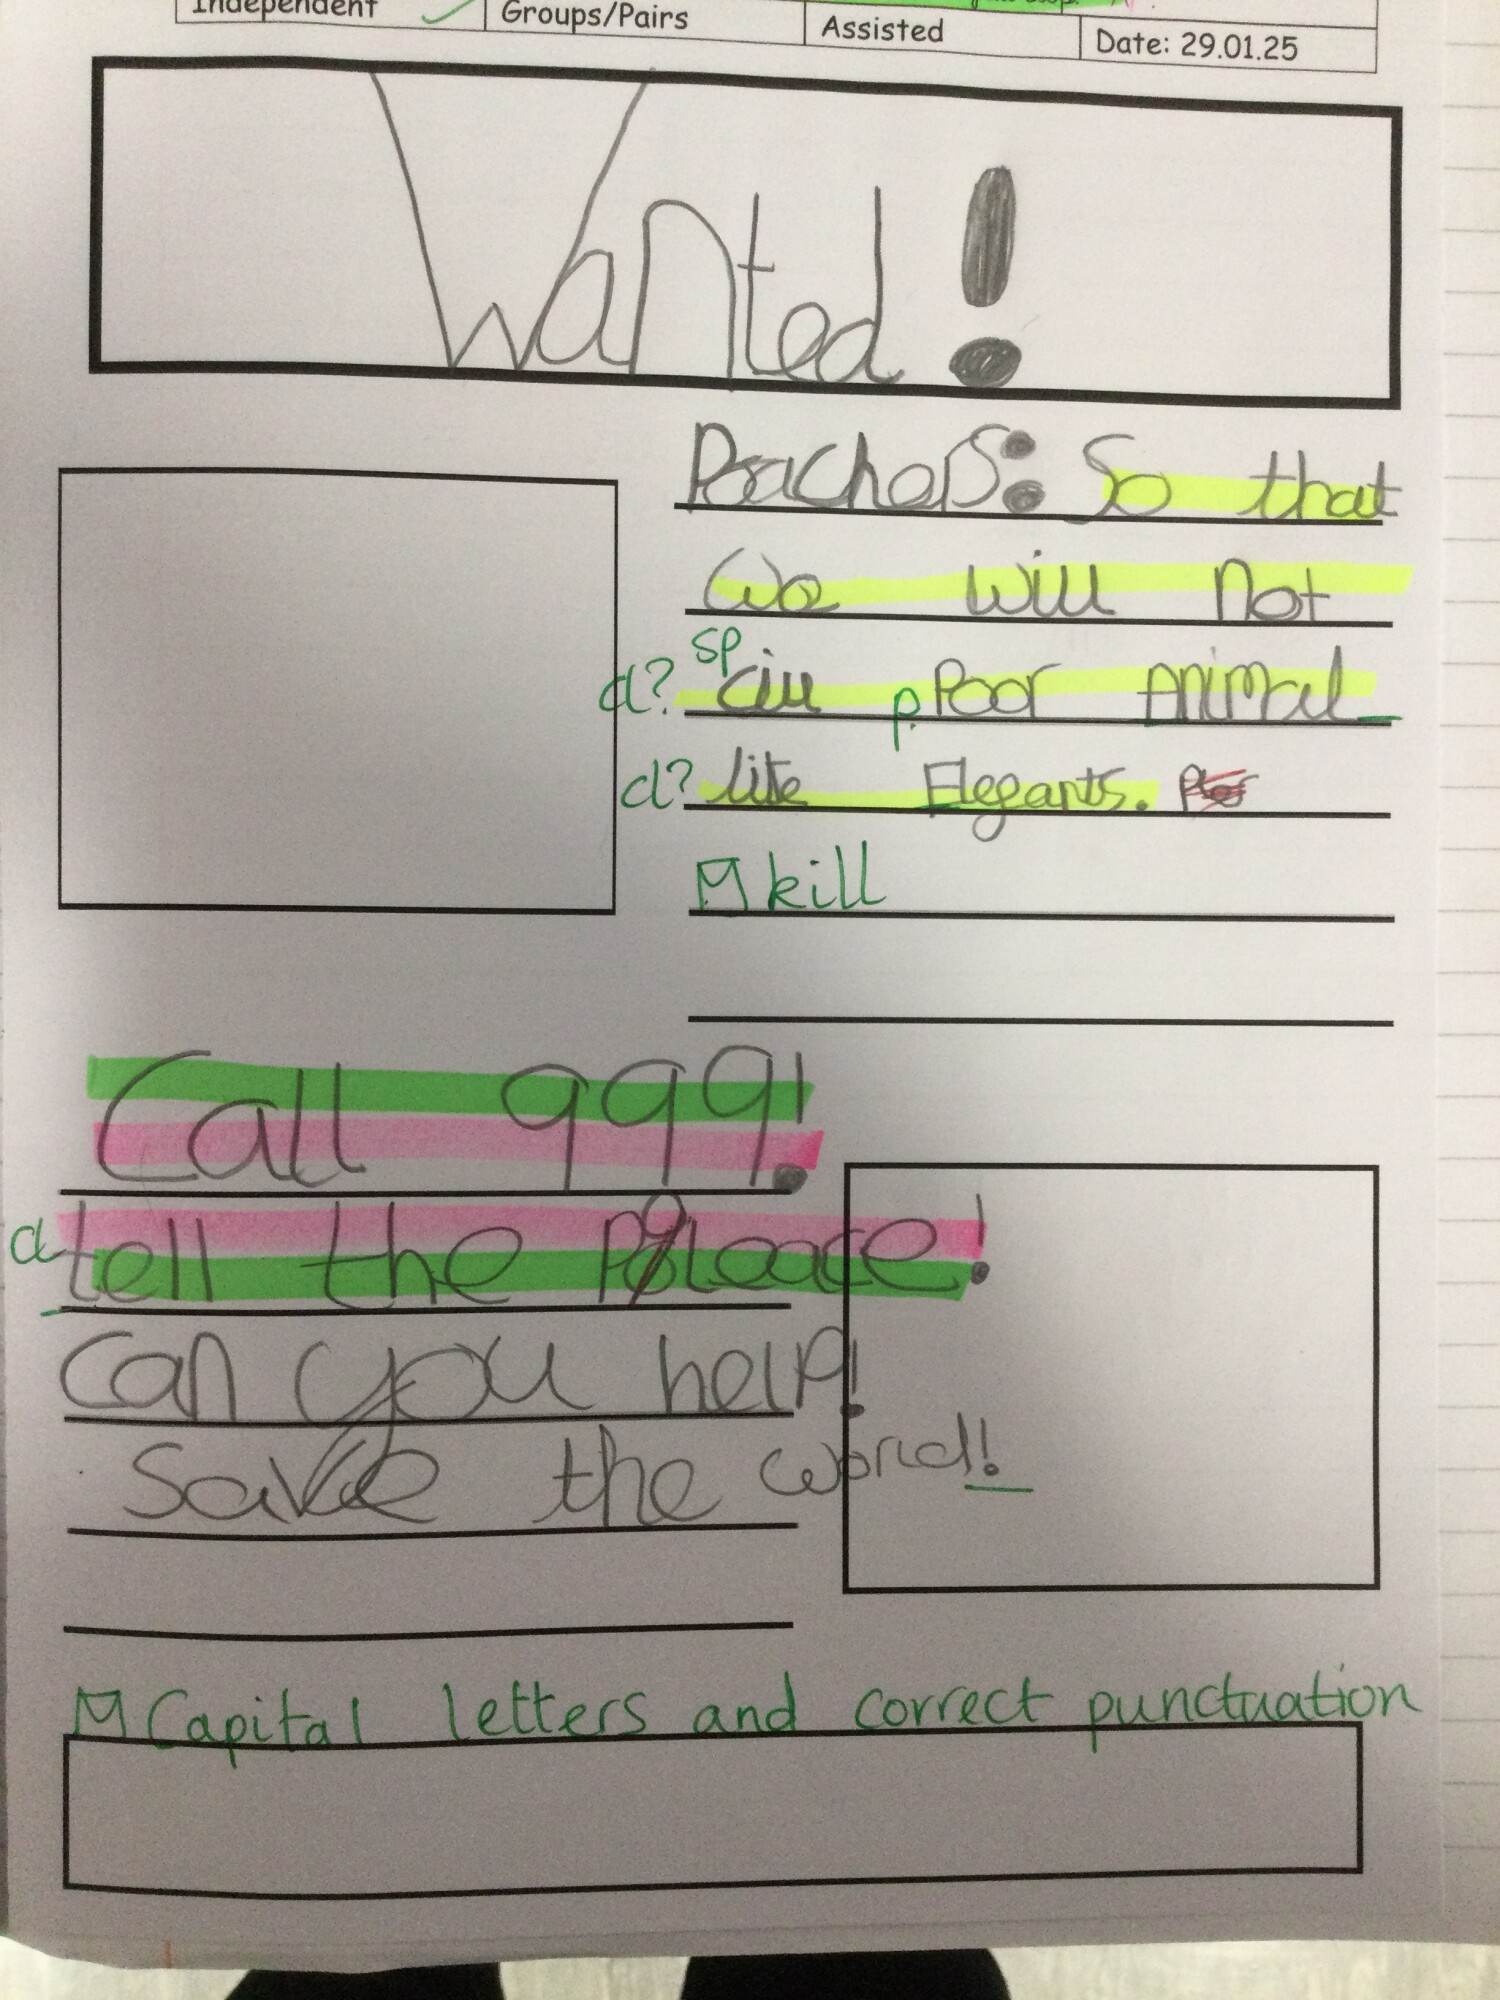 Independent Groups/Pairs Assisted Date: 29.01.25
Wanted!
Poachers: So that
We will not
sp
d? ciu p Poor Animal
d? like Elegants.
kill
Call 999!
d tell the Poleace!
Can you help!
save the world!
Capital letters and correct punctuation